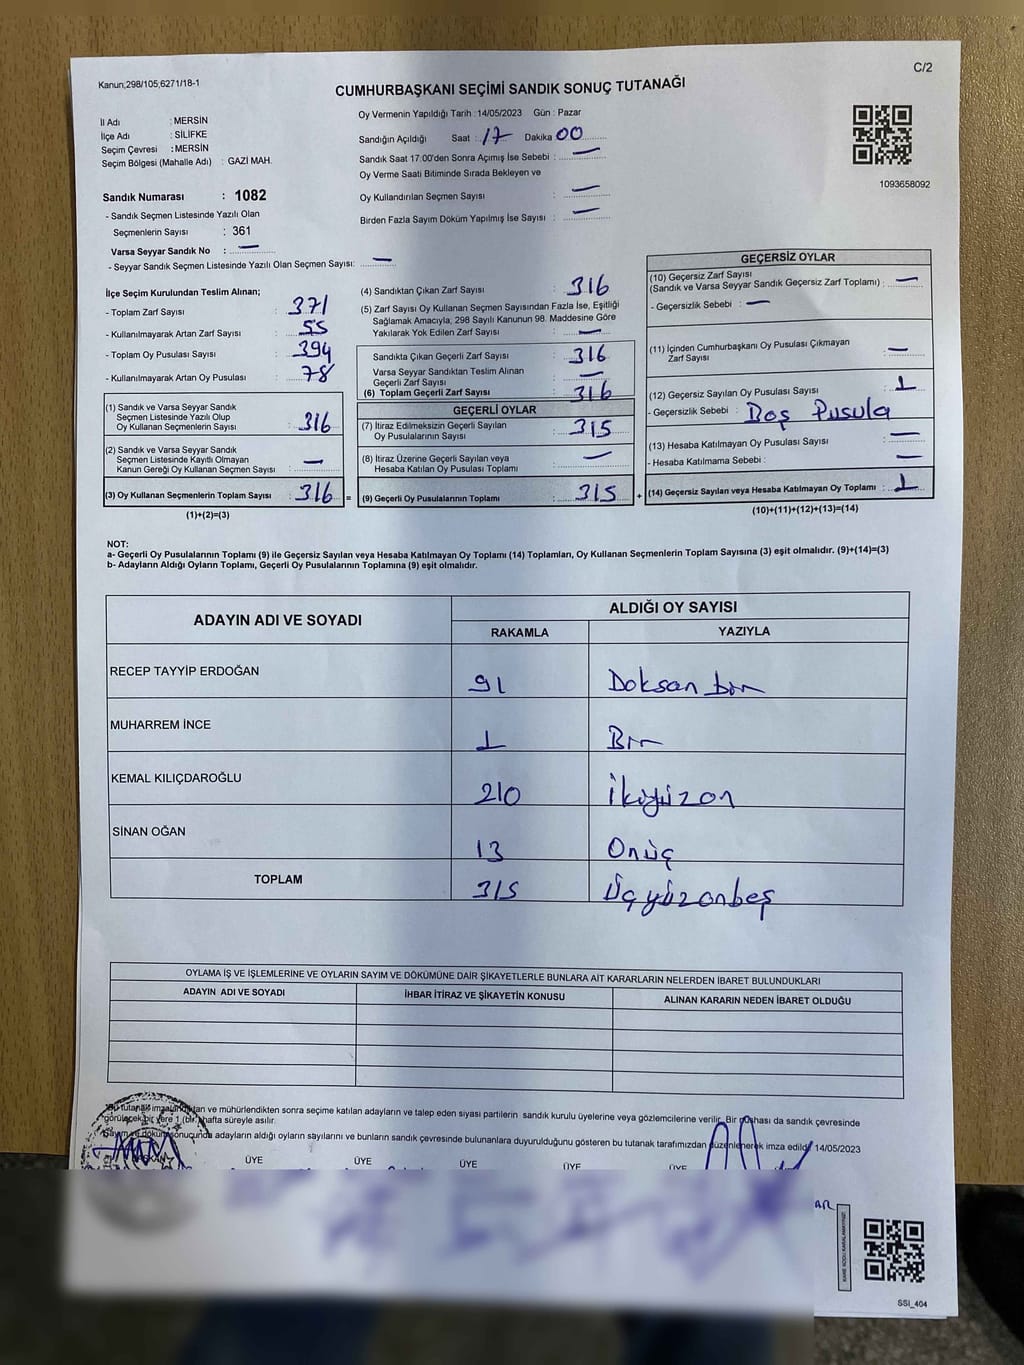 C/2
Kanun;298/105,6271/18-1
CUMHURBAŞKANI SEÇİMİ SANDIK SONUÇ TUTANAĞI
Oy Vermenin Yapıldığı Tarih : 14/05/2023 Gün : Pazar
İl Adı : MERSİN
İlçe Adı : SİLİFKE
Seçim Çevresi : MERSİN
Seçim Bölgesi (Mahalle Adı) : GAZİ MAH.
Sandığın Açıldığı Saat : 17 Dakika 00
Sandık Saat 17:00'den Sonra Açımış İse Sebebi : —
Oy Verme Saati Bitiminde Sırada Bekleyen ve
Oy Kullandırılan Seçmen Sayısı : —
Birden Fazla Sayım Döküm Yapılmış İse Sayısı : —
1093658092
Sandık Numarası : 1082
- Sandık Seçmen Listesinde Yazılı Olan
Seçmenlerin Sayısı : 361
Varsa Seyyar Sandık No : —
- Seyyar Sandık Seçmen Listesinde Yazılı Olan Seçmen Sayısı: —
İlçe Seçim Kurulundan Teslim Alınan;
- Toplam Zarf Sayısı : 371
- Kullanılmayarak Artan Zarf Sayısı : 55
- Toplam Oy Pusulası Sayısı : 394
- Kullanılmayarak Artan Oy Pusulası : 78
(1) Sandık ve Varsa Seyyar Sandık
Seçmen Listesinde Yazılı Olup
Oy Kullanan Seçmenlerin Sayısı : 316
(2) Sandık ve Varsa Seyyar Sandık
Seçmen Listesinde Kayıtlı Olmayan
Kanun Gereği Oy Kullanan Seçmen Sayısı : —
(3) Oy Kullanan Seçmenlerin Toplam Sayısı : 316 =
(1)+(2)=(3)
(4) Sandıktan Çıkan Zarf Sayısı : 316
(5) Zarf Sayısı Oy Kullanan Seçmen Sayısından Fazla İse, Eşitliği
Sağlamak Amacıyla; 298 Sayılı Kanunun 98. Maddesine Göre
Yakılarak Yok Edilen Zarf Sayısı : —
Sandıkta Çıkan Geçerli Zarf Sayısı : 316
Varsa Seyyar Sandıktan Teslim Alınan
Geçerli Zarf Sayısı : —
(6) Toplam Geçerli Zarf Sayısı : 316
GEÇERLİ OYLAR
(7) İtiraz Edilmeksizin Geçerli Sayılan
Oy Pusulalarının Sayısı : 315
(8) İtiraz Üzerine Geçerli Sayılan veya
Hesaba Katılan Oy Pusulası Toplamı : —
(9) Geçerli Oy Pusulalarının Toplamı : 315 +
GEÇERSİZ OYLAR
(10) Geçersiz Zarf Sayısı
(Sandık ve Varsa Seyyar Sandık Geçersiz Zarf Toplamı) : —
- Geçersizlik Sebebi : —
(11) İçinden Cumhurbaşkanı Oy Pusulası Çıkmayan
Zarf Sayısı : —
(12) Geçersiz Sayılan Oy Pusulası Sayısı : 1
- Geçersizlik Sebebi : Boş Pusula
(13) Hesaba Katılmayan Oy Pusulası Sayısı : —
- Hesaba Katılmama Sebebi : —
(14) Geçersiz Sayılan veya Hesaba Katılmayan Oy Toplamı : 1
(10)+(11)+(12)+(13)=(14)
NOT:
a- Geçerli Oy Pusulalarının Toplamı (9) ile Geçersiz Sayılan veya Hesaba Katılmayan Oy Toplamı (14) Toplamları, Oy Kullanan Seçmenlerin Toplam Sayısına (3) eşit olmalıdır. (9)+(14)=(3)
b- Adayların Aldığı Oyların Toplamı, Geçerli Oy Pusulalarının Toplamına (9) eşit olmalıdır.
ADAYIN ADI VE SOYADI ALDIĞI OY SAYISI
RAKAMLA YAZIYLA
RECEP TAYYİP ERDOĞAN 91 Doksan bir
MUHARREM İNCE 1 Bir
KEMAL KILIÇDAROĞLU 210 İkiyüzon
SİNAN OĞAN 13 Onüç
TOPLAM 315 Üçyüzonbeş
OYLAMA İŞ VE İŞLEMLERİNE VE OYLARIN SAYIM VE DÖKÜMÜNE DAİR ŞİKAYETLERLE BUNLARA AİT KARARLARIN NELERDEN İBARET BULUNDUKLARI
ADAYIN ADI VE SOYADI İHBAR İTİRAZ VE ŞİKAYETİN KONUSU ALINAN KARARIN NEDEN İBARET OLDUĞU
Bu tutanak imzalandıktan ve mühürlendikten sonra seçime katılan adayların ve talep eden siyasi partilerin sandık kurulu üyelerine veya gözlemcilerine verilir. Bir nüshası da sandık çevresinde
görülecek bir yere 1 (bir) hafta süreyle asılır.
Sayım ve döküm sonucunda adayların aldığı oyların sayılarını ve bunların sandık çevresinde bulunanlara duyurulduğunu gösteren bu tutanak tarafımızdan düzenlenerek imza edildi. 14/05/2023
BAŞKAN ÜYE ÜYE ÜYE ÜYE ÜYE
SSİ_404